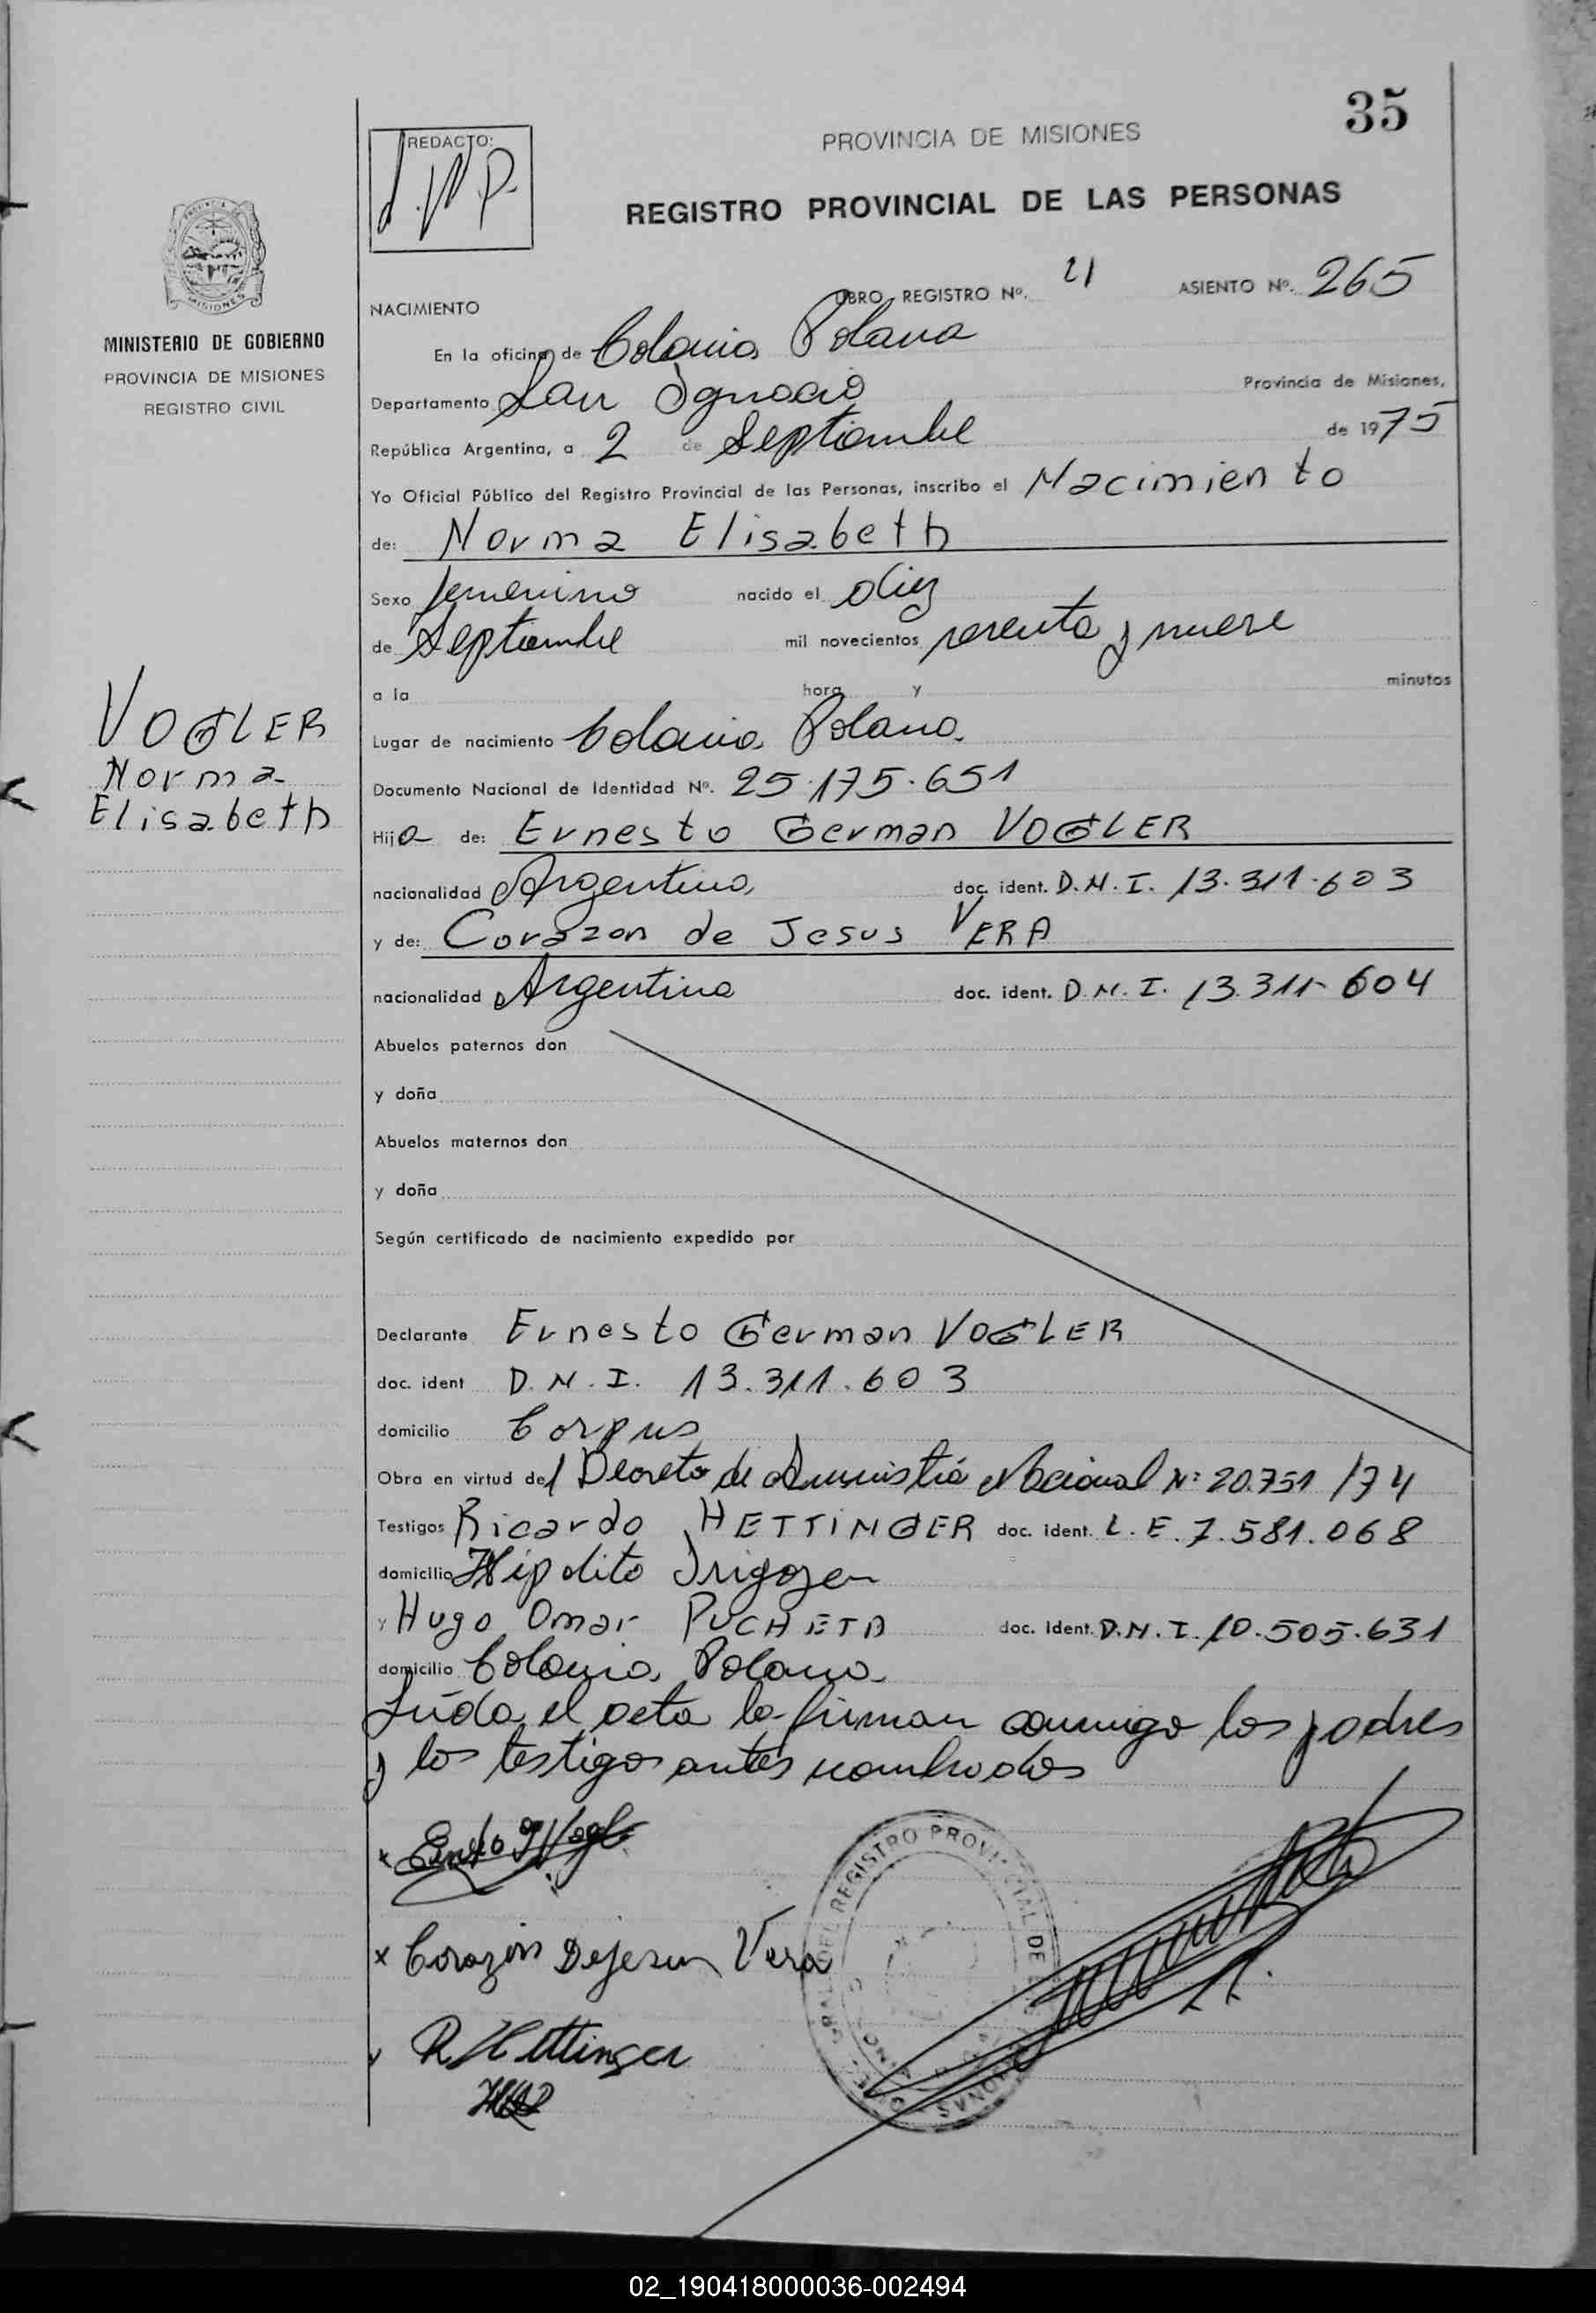 35
REDACTO:
PROVINCIA DE MISIONES
REGISTRO PROVINCIAL DE LAS PERSONAS
MINISTERIO DE GOBIERNO
PROVINCIA DE MISIONES
REGISTRO CIVIL
NACIMIENTO LIBRO REGISTRO Nº. 21 ASIENTO Nº. 265
En la oficina de Colonia Polana
Departamento San Ignacio Provincia de Misiones,
República Argentina, a 2 de Septiembre de 1975
Yo Oficial Público del Registro Provincial de las Personas, inscribo el Nacimiento
de: Norma Elisabeth
Sexo femenino nacido el diez
de Septiembre mil novecientos sesenta y nueve
a la hora y minutos
VOGLER
Norma
Elisabeth
Lugar de nacimiento Colonia Polana.
Documento Nacional de Identidad Nº. 25.175.651
Hija de: Ernesto German VOGLER
nacionalidad Argentina, doc. ident. D.N.I. 13.311.603
y de: Corazon de Jesus VERA
nacionalidad Argentina doc. ident. D.N.I. 13.311.604
Abuelos paternos don
y doña
Abuelos maternos don
y doña
Según certificado de nacimiento expedido por
Declarante Ernesto German VOGLER
doc. ident D.N.I. 13.311.603
domicilio Corpus
Obra en virtud del Decreto de Amnistia Nacional Nº 20.751/74
Testigos Ricardo HETTINGER doc. ident. L.E. 7.581.068
domicilio Hipolito Irigoyen
y Hugo Omar PUCHETA doc. Ident. D.N.I. 10.505.631
domicilio Colonia Polana
Leída el acta la firman conmigo los padres
y los testigos antes nombrados
x Corazon Dejesus Vera
R Hettinger
REGISTRO PROVINCIAL DE
02_190418000036-002494